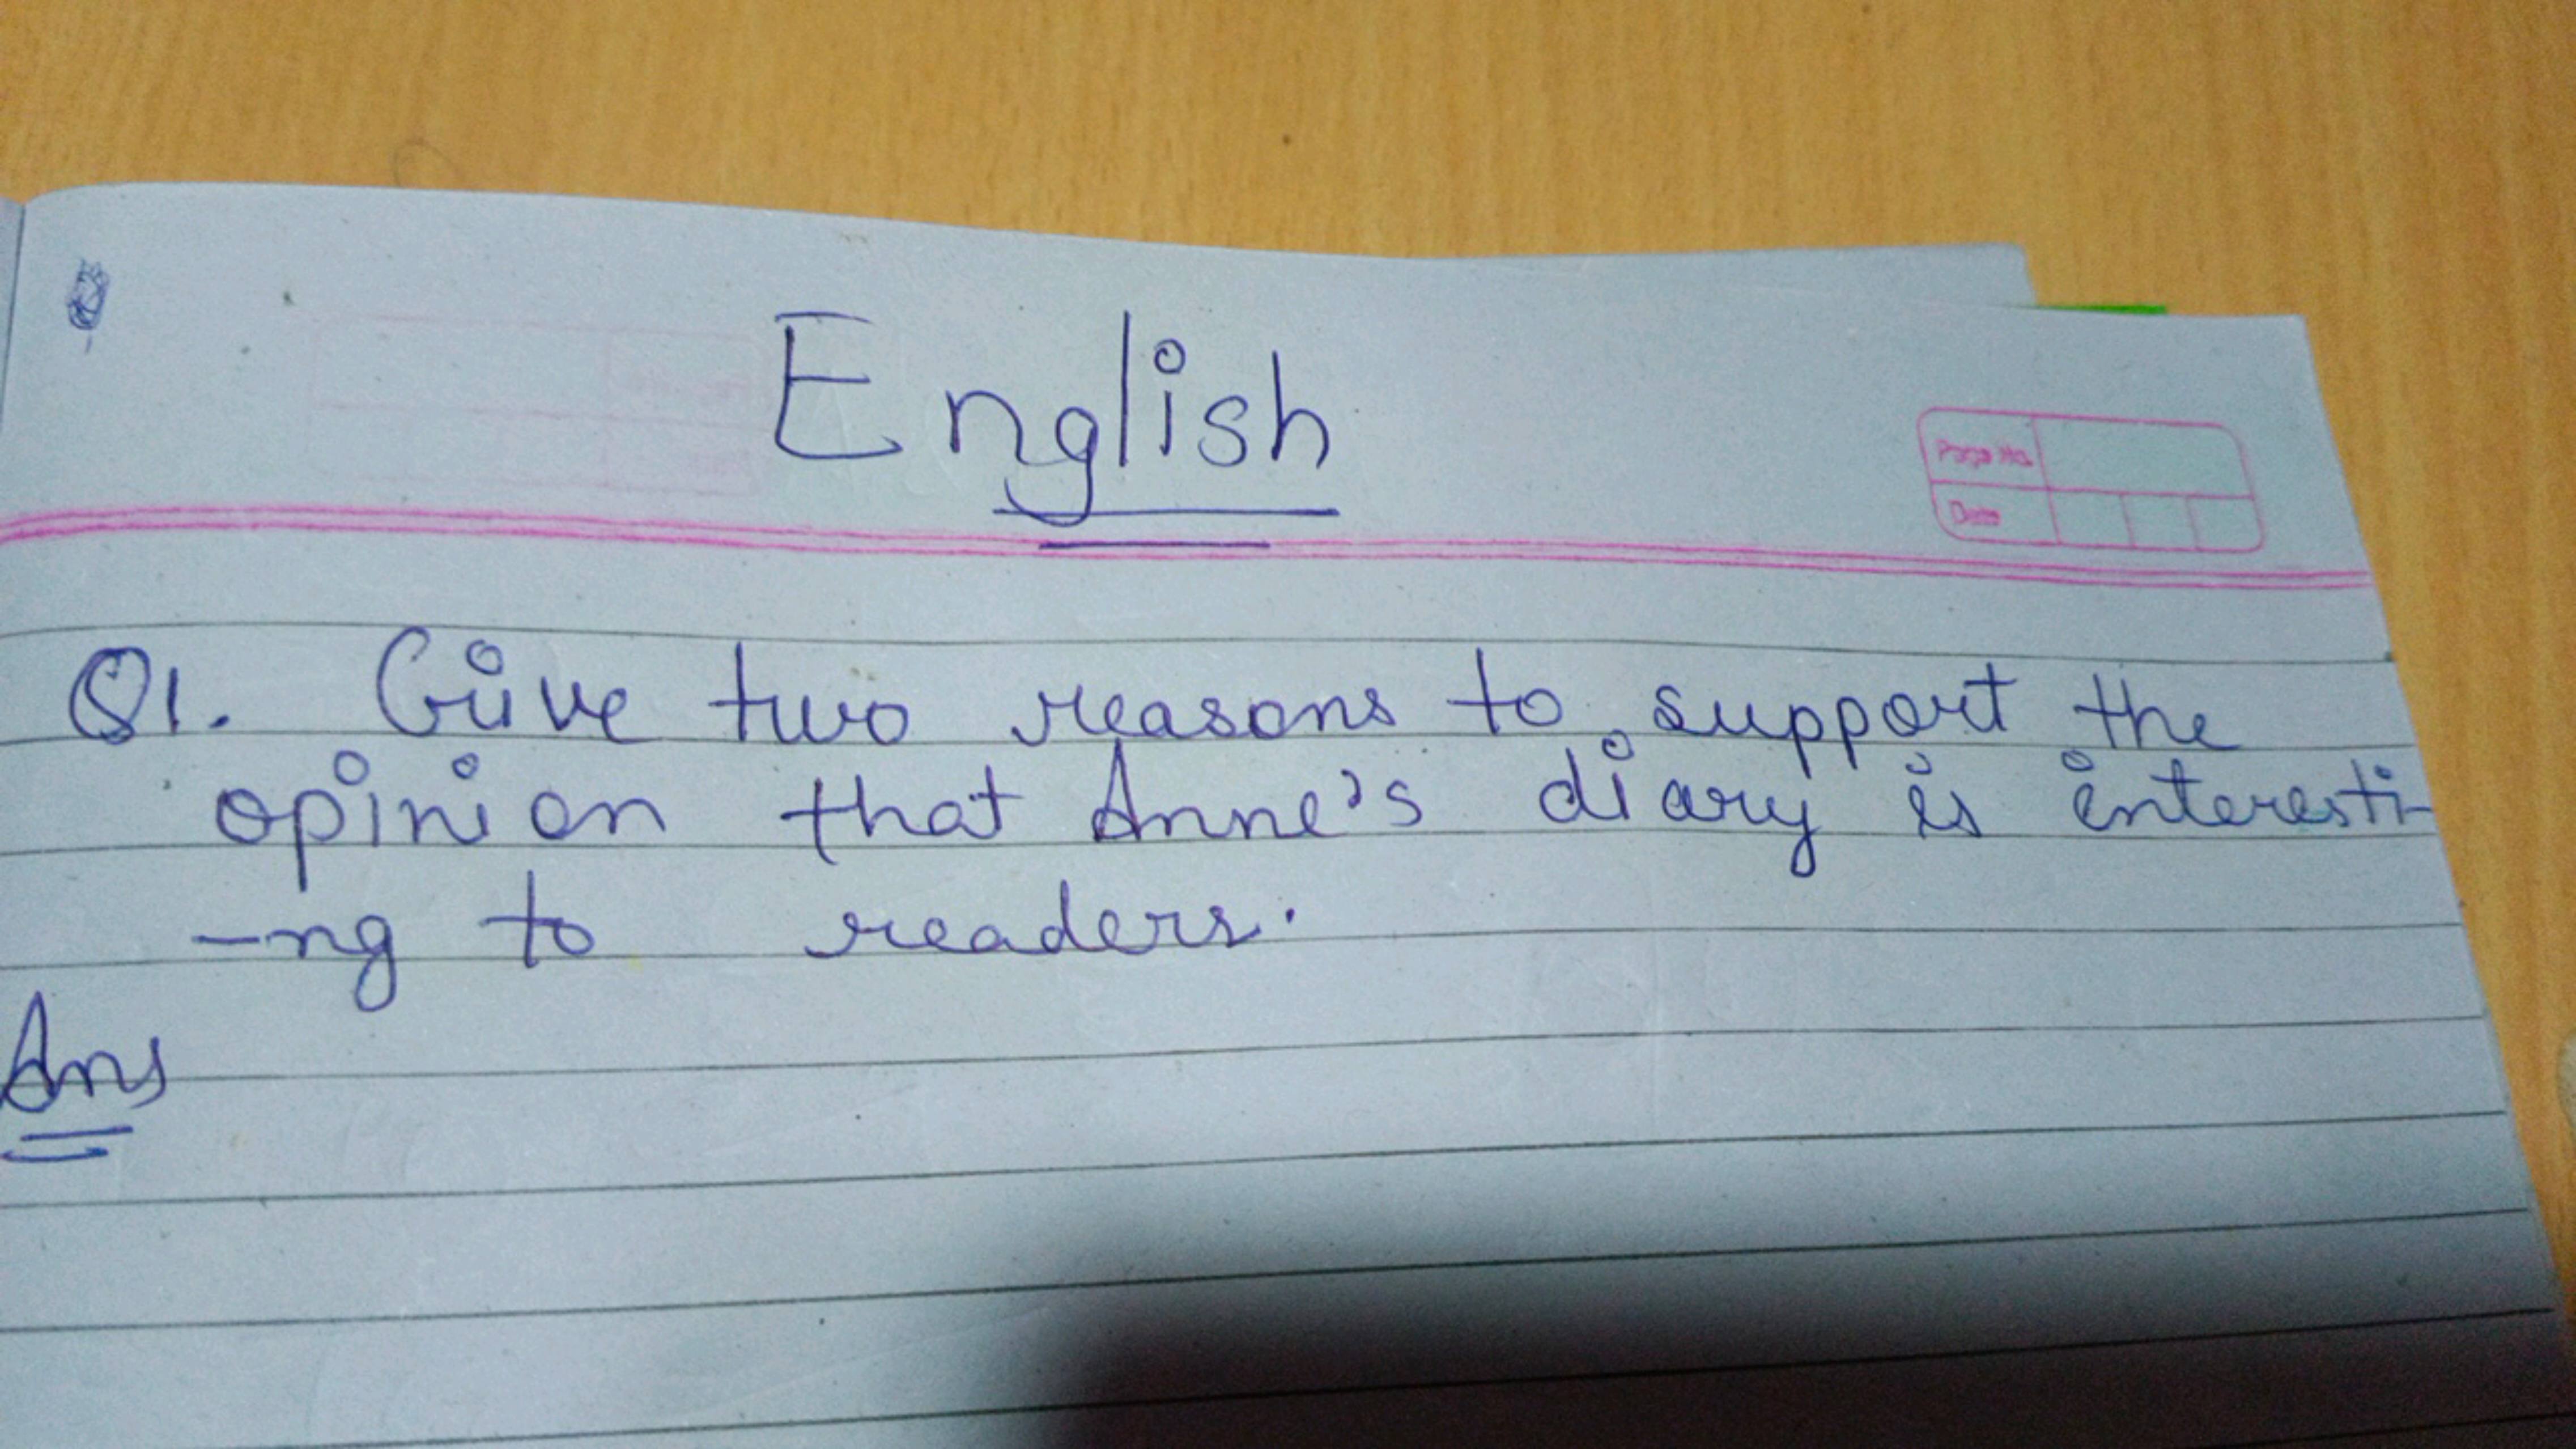 English
Page No.
Date
Q1. Give two reasons to support the
opinion that Anne's diary is interesti-
-ng to readers.
Ans